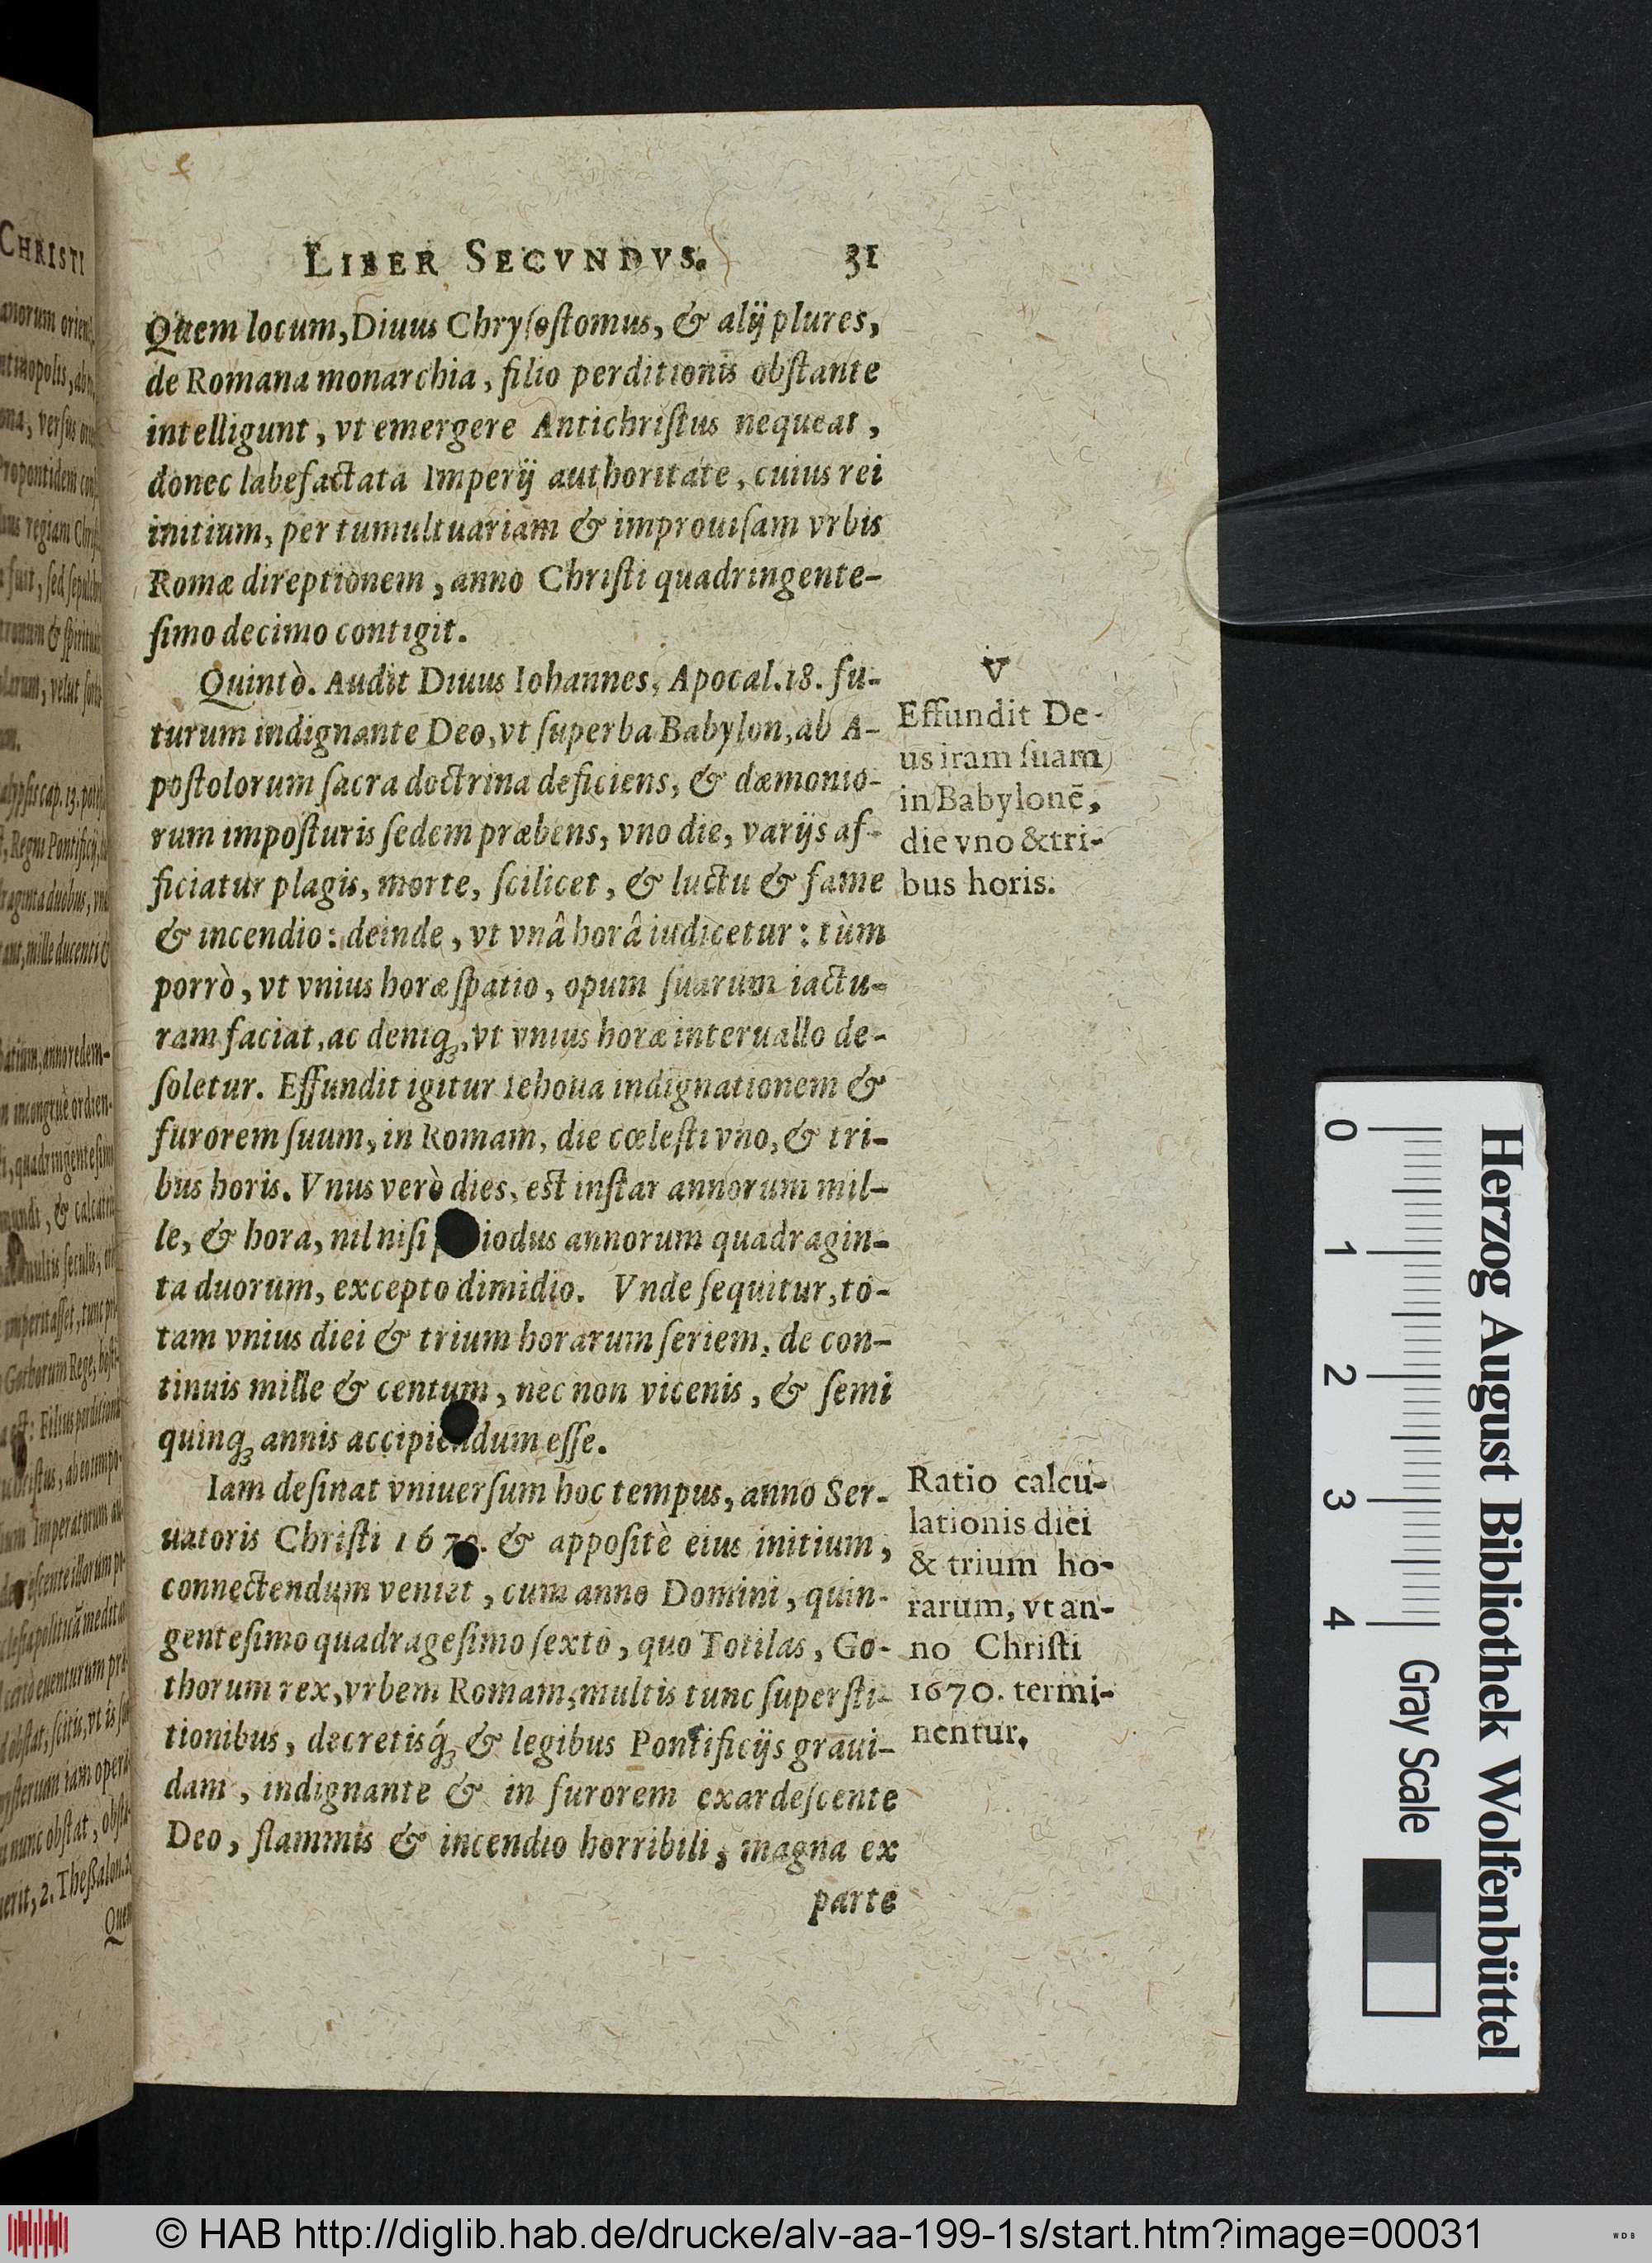 LIBER SECVNDVS. 31
Quem locum, Diuus Chryſoſtomus, & alij plures,
de Romana monarchia, filio perditionis obſtante
intelligunt, vt emergere Antichriſtus nequeat,
donec labefactata Imperij authoritate, cuius rei
initium, per tumultuariam & improuiſam vrbis
Romæ direptionem, anno Chriſti quadringente-
ſimo decimo contigit.
Quintò. Audit Diuus Iohannes, Apocal. 18. fu-
turum indignante Deo, vt ſuperba Babylon, ab A-
poſtolorum ſacra doctrina deficiens, & dæmonio-
rum impoſturis ſedem præbens, vno die, varijs af-
ficiatur plagis, morte, ſcilicet, & luctu & fame
& incendio: deinde, vt vnâ horâ iudicetur: tùm
porrò, vt vnius horæ ſpatio, opum ſuarum iactu-
ram faciat, ac deniq́ꝫ, vt vnius horæ interuallo de-
ſoletur. Effundit igitur Iehoua indignationem &
furorem ſuum, in Romam, die cœleſti vno, & tri-
bus horis. Vnus verò dies, eſt inſtar annorum mil-
le, & hora, nil niſi iodus annorum quadragin-
ta duorum, excepto dimidio. Vnde ſequitur, to-
tam vnius diei & trium horarum ſeriem, de con-
tinuis mille & centum, nec non vicenis, & ſemi
quinqꝫ annis accipiendum eſſe.
Iam deſinat vniuerſum hoc tempus, anno Ser-
uatoris Chriſti 1670. & appoſitè eius initium,
connectendum veniet, cum anno Domini, quin-
genteſimo quadrageſimo ſexto, quo Totilas, Go-
thorum rex, vrbem Romam, multis tunc ſuperſti-
tionibus, decretisq́ꝫ & legibus Pontificijs graui-
dam, indignante & in furorem exardeſcente
Deo, flammis & incendio horribili, magna ex
parte
V
Effundit De-
us iram ſuam
in Babylonē,
die vno & tri-
bus horis.
Ratio calcu-
lationis diei
& trium ho-
rarum, vt an-
no Chriſti
1670. termi-
nentur.
CHRISTI
Herzog August Bibliothek Wolfenbüttel
0 1 2 3 4
Gray Scale
© HAB http://diglib.hab.de/drucke/alv-aa-199-1s/start.htm?image=00031
WDB